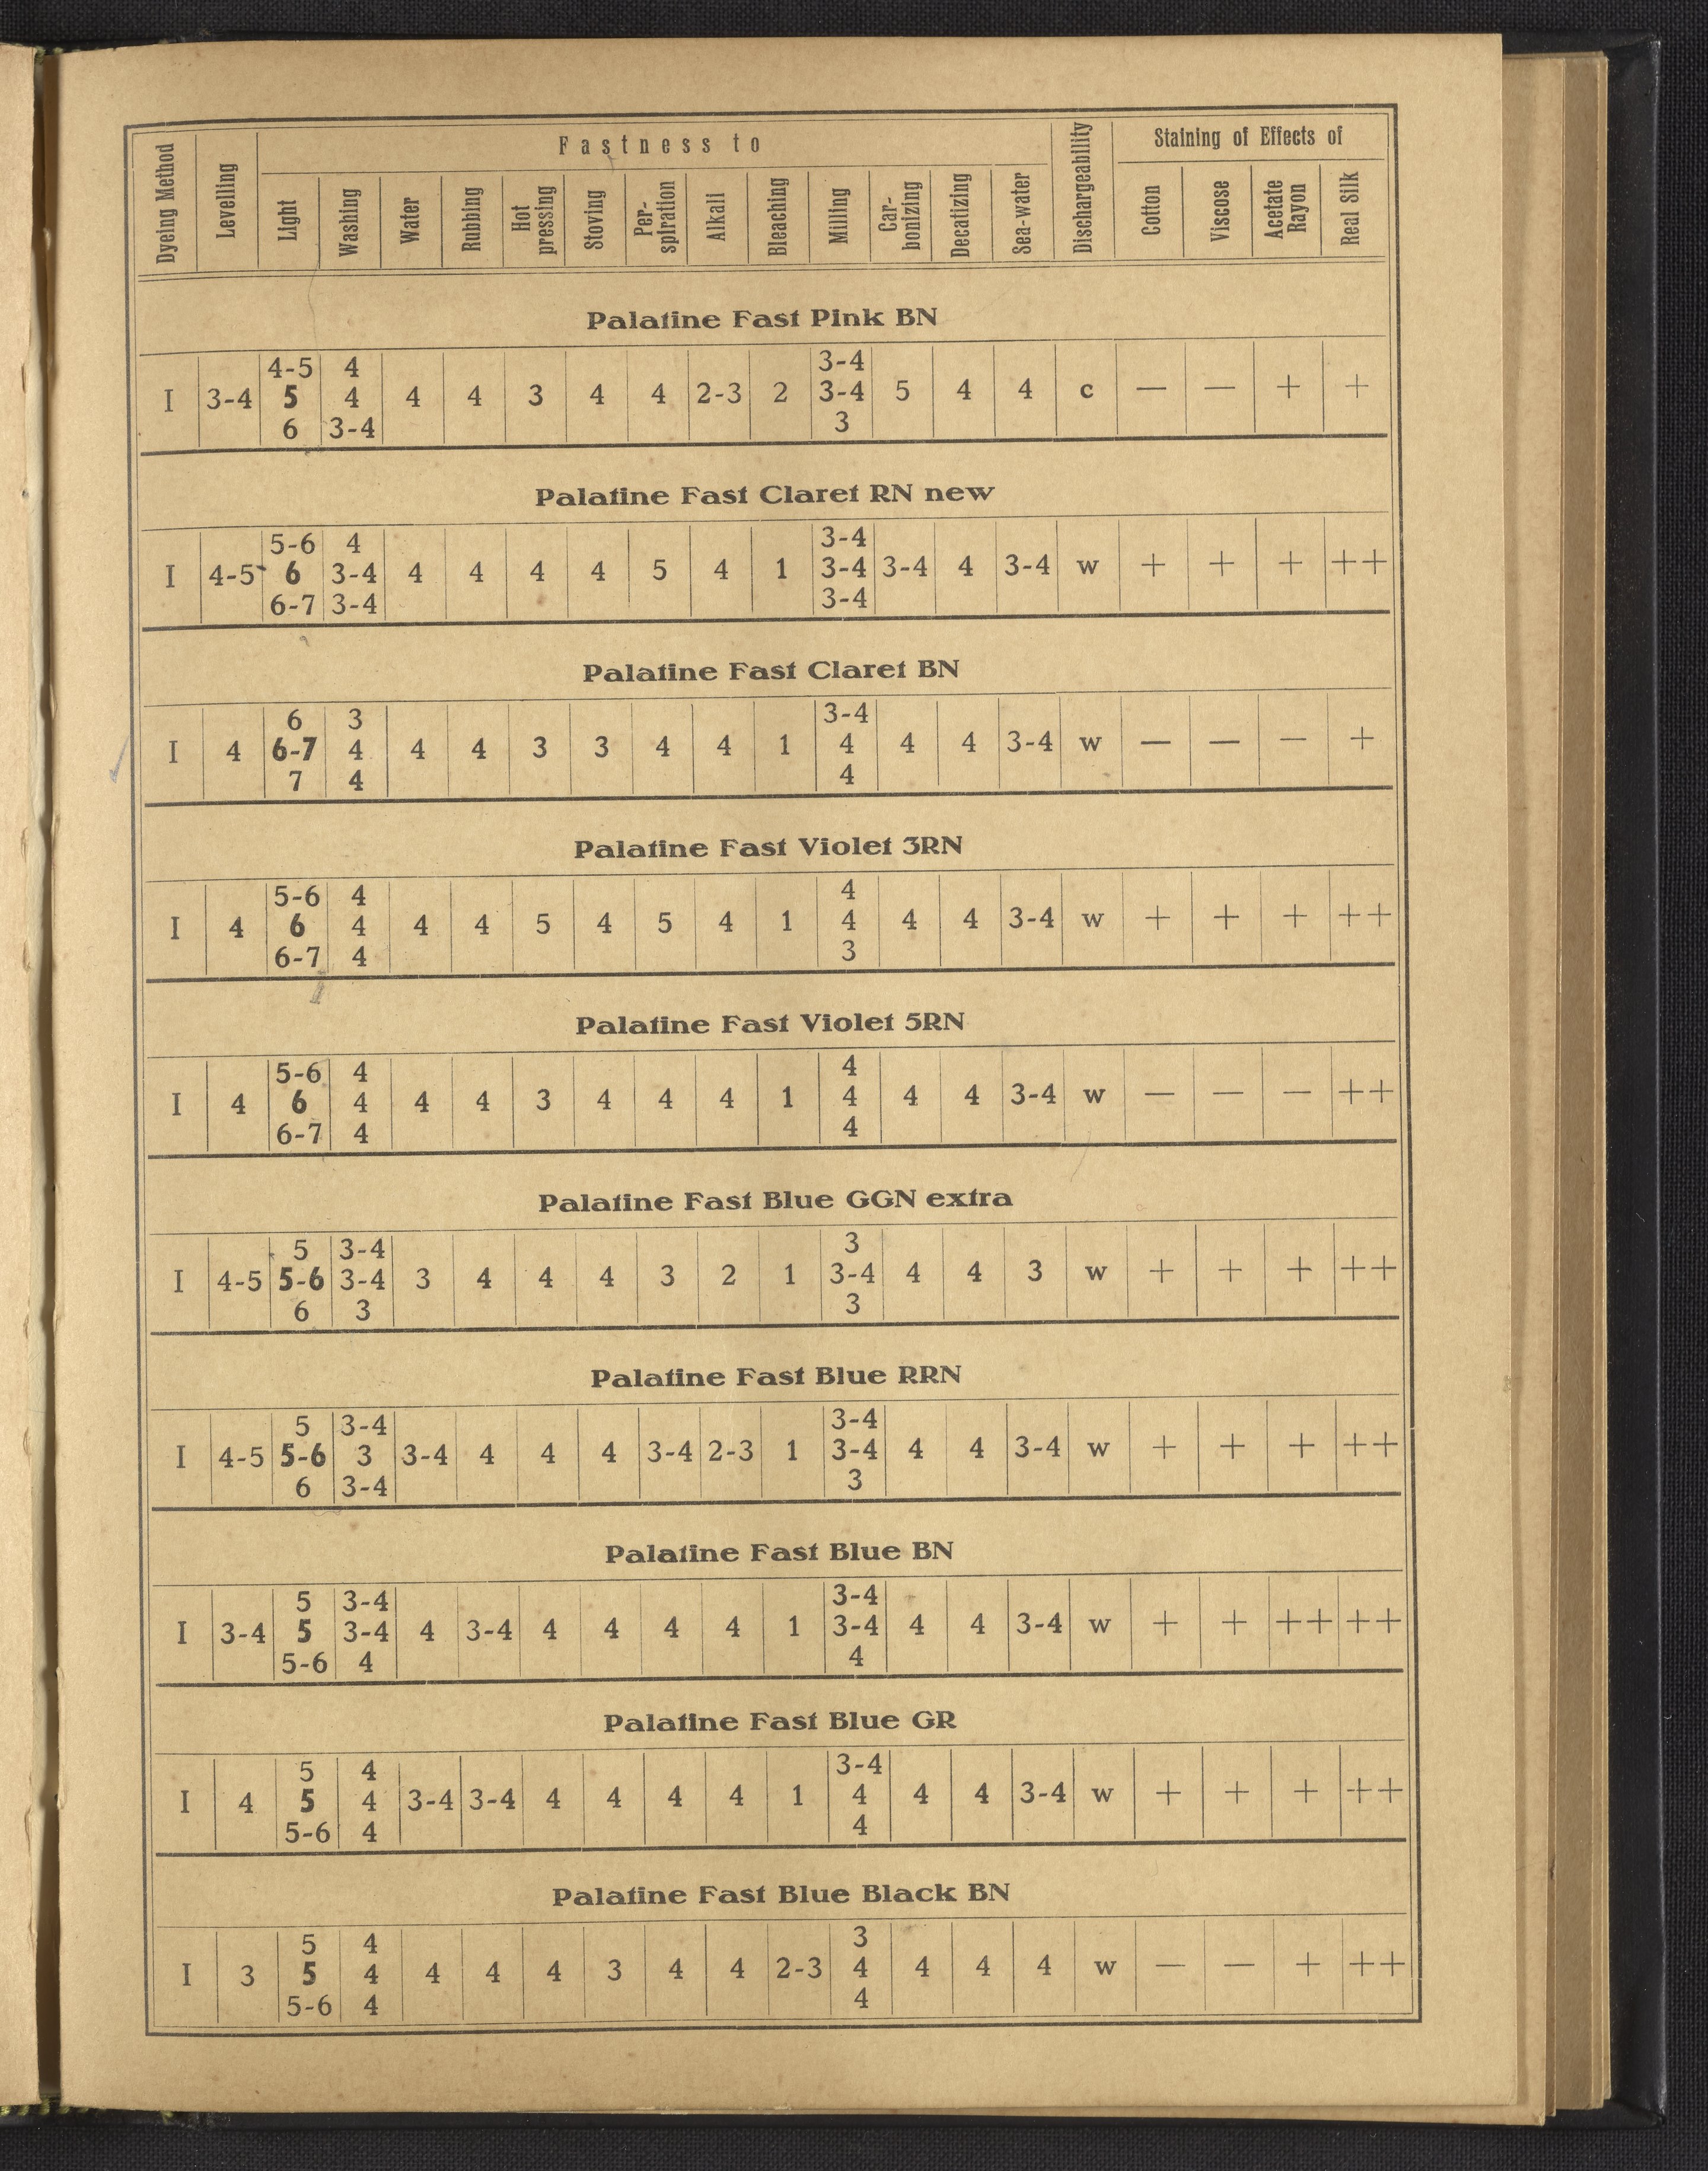 Dyeing Method Levelling Fastness to Dischargeability Staining of Effects of
Light Washing Water Rubbing Hot pressing Stoving Per-spiration Alkali Bleaching Milling Car-bonizing Decatizing Sea-water Cotton Viscose Acetate Rayon Real Silk
Palatine Fast Pink BN
4-5 4 3-4
I 3-4 5 4 4 4 3 4 4 2-3 2 3-4 5 4 4 c — — + +
6 3-4 3
Palatine Fast Claret RN new
5-6 4 3-4
I 4-5 6 3-4 4 4 4 4 5 4 1 3-4 3-4 4 3-4 w + + + ++
6-7 3-4 3-4
Palatine Fast Claret BN
6 3 3-4
I 4 6-7 4 4 4 3 3 4 4 1 4 4 4 3-4 w — — — +
7 4 4
Palatine Fast Violet 3RN
5-6 4 4
I 4 6 4 4 4 5 4 5 4 1 4 4 4 3-4 w + + + ++
6-7 4 3
Palatine Fast Violet 5RN
5-6 4 4
I 4 6 4 4 4 3 4 4 4 1 4 4 4 3-4 w — — — ++
6-7 4 4
Palatine Fast Blue GGN extra
5 3-4 3
I 4-5 5-6 3-4 3 4 4 4 3 2 1 3-4 4 4 3 w + + + ++
6 3 3
Palatine Fast Blue RRN
5 3-4 3-4
I 4-5 5-6 3 3-4 4 4 4 3-4 2-3 1 3-4 4 4 3-4 w + + + ++
6 3-4 3
Palatine Fast Blue BN
5 3-4 3-4
I 3-4 5 3-4 4 3-4 4 4 4 4 1 3-4 4 4 3-4 w + + ++ ++
5-6 4 4
Palatine Fast Blue GR
5 4 3-4
I 4 5 4 3-4 3-4 4 4 4 4 1 4 4 4 3-4 w + + + ++
5-6 4 4
Palatine Fast Blue Black BN
5 4 3
I 3 5 4 4 4 4 3 4 4 2-3 4 4 4 4 w — — + ++
5-6 4 4